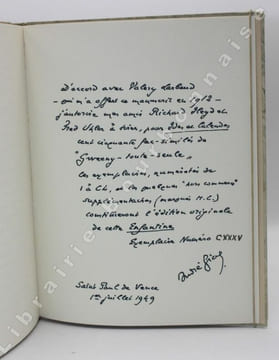 D'accord avec Valery Larbaud
- qui m'a offert ce manuscrit en 1912 -
j'autorise mes amis Richard Heyd et
Fred Uhler à tirer, pour Ides et Calendes
cent cinquante fac-similés de
"Gwenny - toute - seule"
Les exemplaires, numérotés de
1 à CL, et les quelques "hors commerce"
supplémentaires (marqués H.C.)
constituent l'édition originale
de cette Enfantine
Exemplaire Numéro CXXXV
André Gide
Saint Paul de Vence
1er juillet 1949
Librairie Bourbonnaise